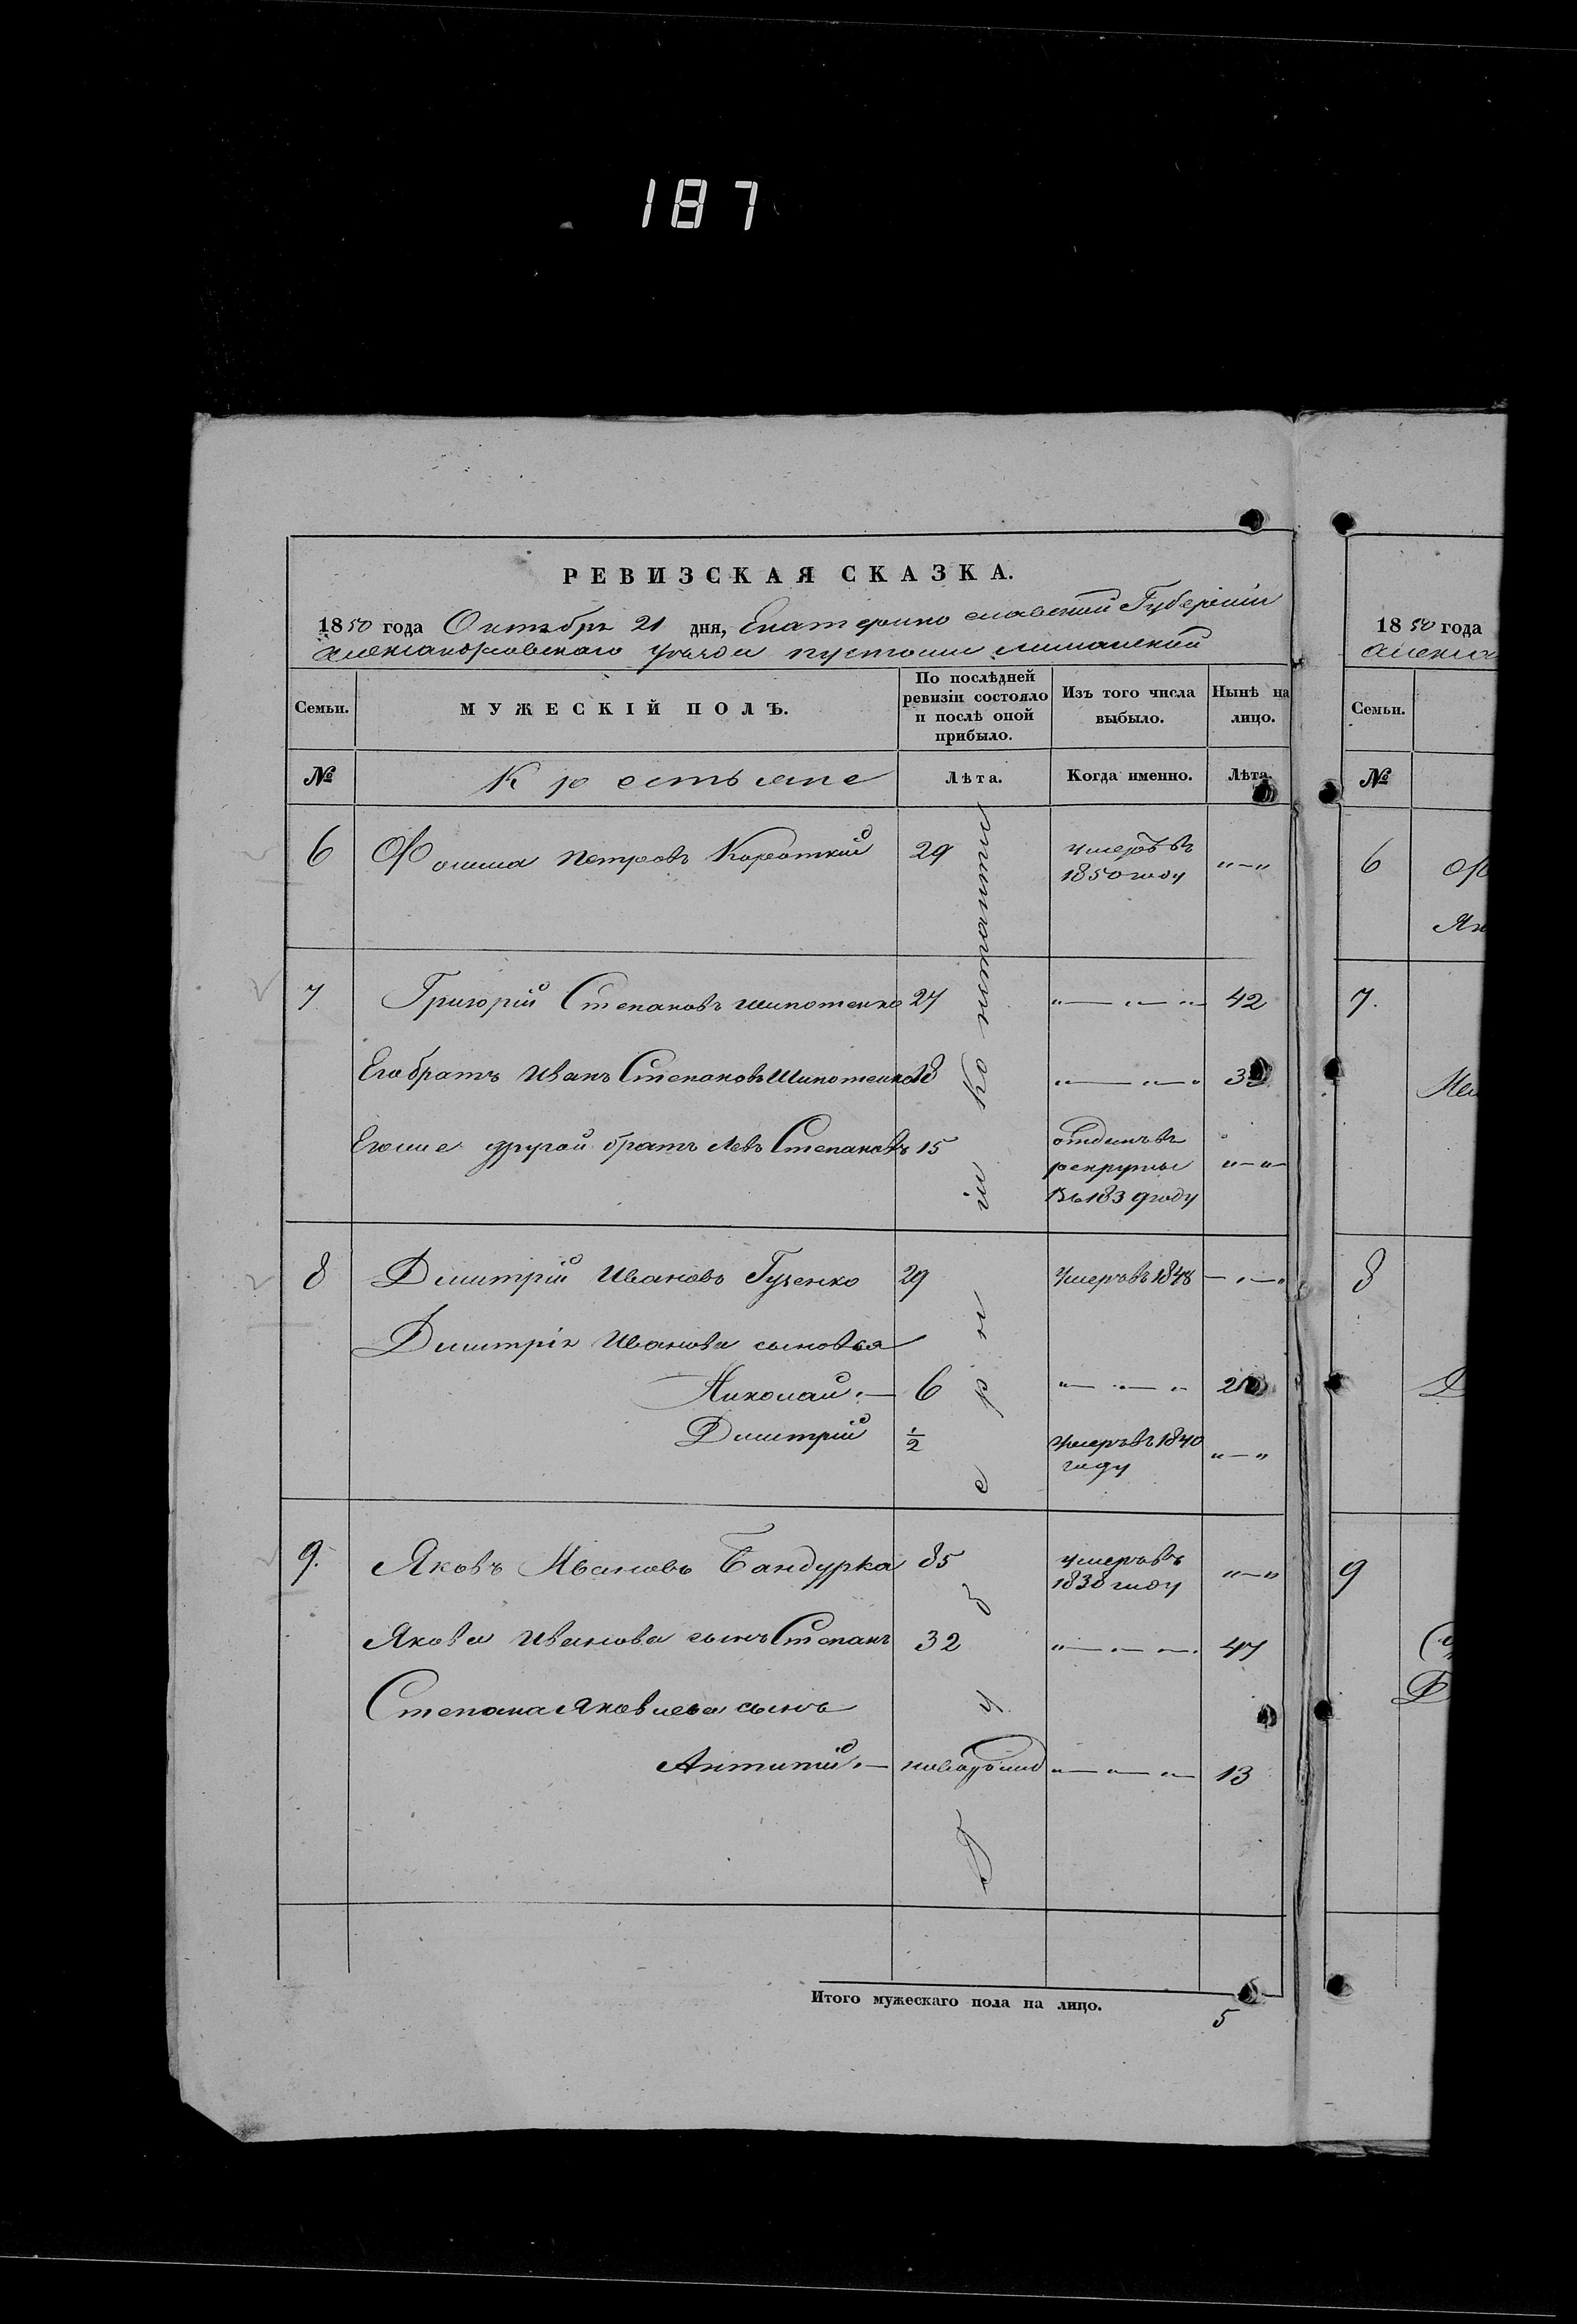 187
РЕВИЗСКАЯ СКАЗКА.
1850 года Октября 21 дня, Екатеринославской Губерніи
Александровскаго уѣзда пустоши
Семьи.
МУЖЕСКІЙ ПОЛЪ.
По послѣдней ревизіи состояло и послѣ оной прибыло.
Изъ того числа выбыло.
Нынѣ на лицо.
№ Крестьяне Лѣта. Когда именно. Лѣта.
6 Фомма Петровъ Короткій 29 умеръ въ "—"
1850 году
7 Григорій Степановъ Шипотенко 27 "— "— "— 42
Его братъ Иванъ Степановъ Шипотенко 18 "— "— " 33
Егоже другой братъ Левъ Степановъ 15 отданъ въ
рекруты "—"—
Въ 1839 году
8 Димитрій Ивановъ Гузенко 29 Умеръ въ 1848 — "—"
Димитрія Иванова сыновья
Николай.— 6 "— "— " 21
Димитрій 1/2 Умеръ въ 1840 "—"
году
9. Яковъ Ивановъ Бандурка 85 умеръ въ "—"
1838 году
Якова Иванова сынъ Степанъ 32 "— "— "—. 47
Степана Яковлева сынъ
Антипій.— новорожд "— "— "— 13
Итого мужескаго пола на лицо. 5
5
1850 года
Семьи.
№
6
Як
7.
8
9